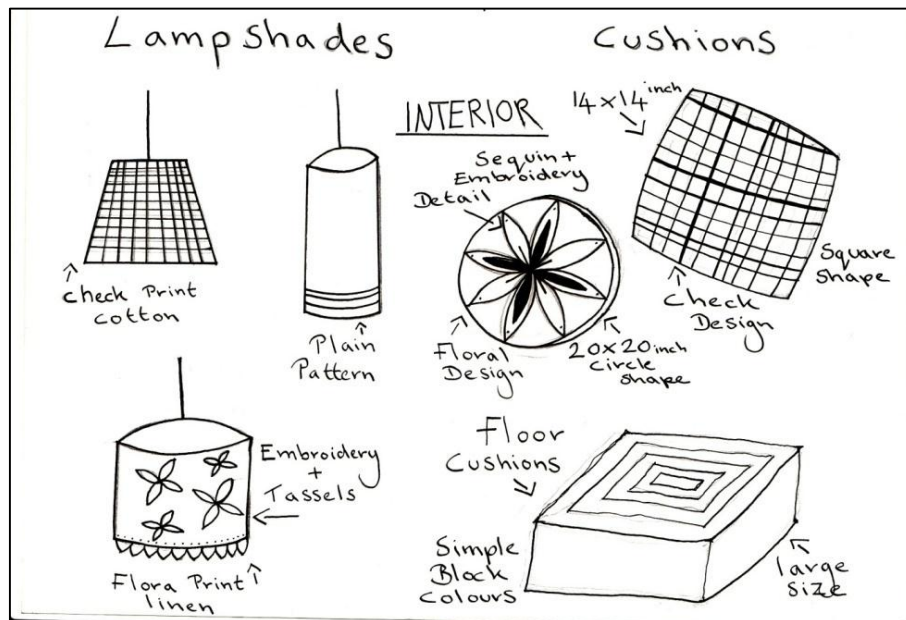 Lampshades
Cushions
INTERIOR
14x14 inch
Sequin +
Embroidery
Detail
Square
Shape
Check Print
Cotton
Plain
Pattern
Floral
Design
20x20 inch
circle
shape
Check
Design
Embroidery
+
Tassels
Flora Print
linen
Floor
Cushions
Simple
Block
Colours
large
size